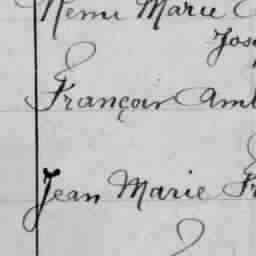 Remi Marie
Jos
François Amb
Jean Marie Fr